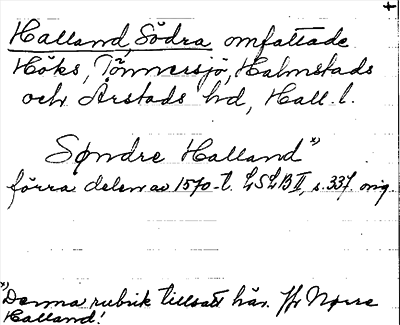 Halland, Södra omfattade
Höks, Tönnersjö, Halmstads
och Årstads hd, Hall. l.
Søndre Halland *)
förra delen av 1570-t. LSLB II, s. 337. orig.
*) Denna rubrik tillsatt här. Jfr Nørre
Halland!